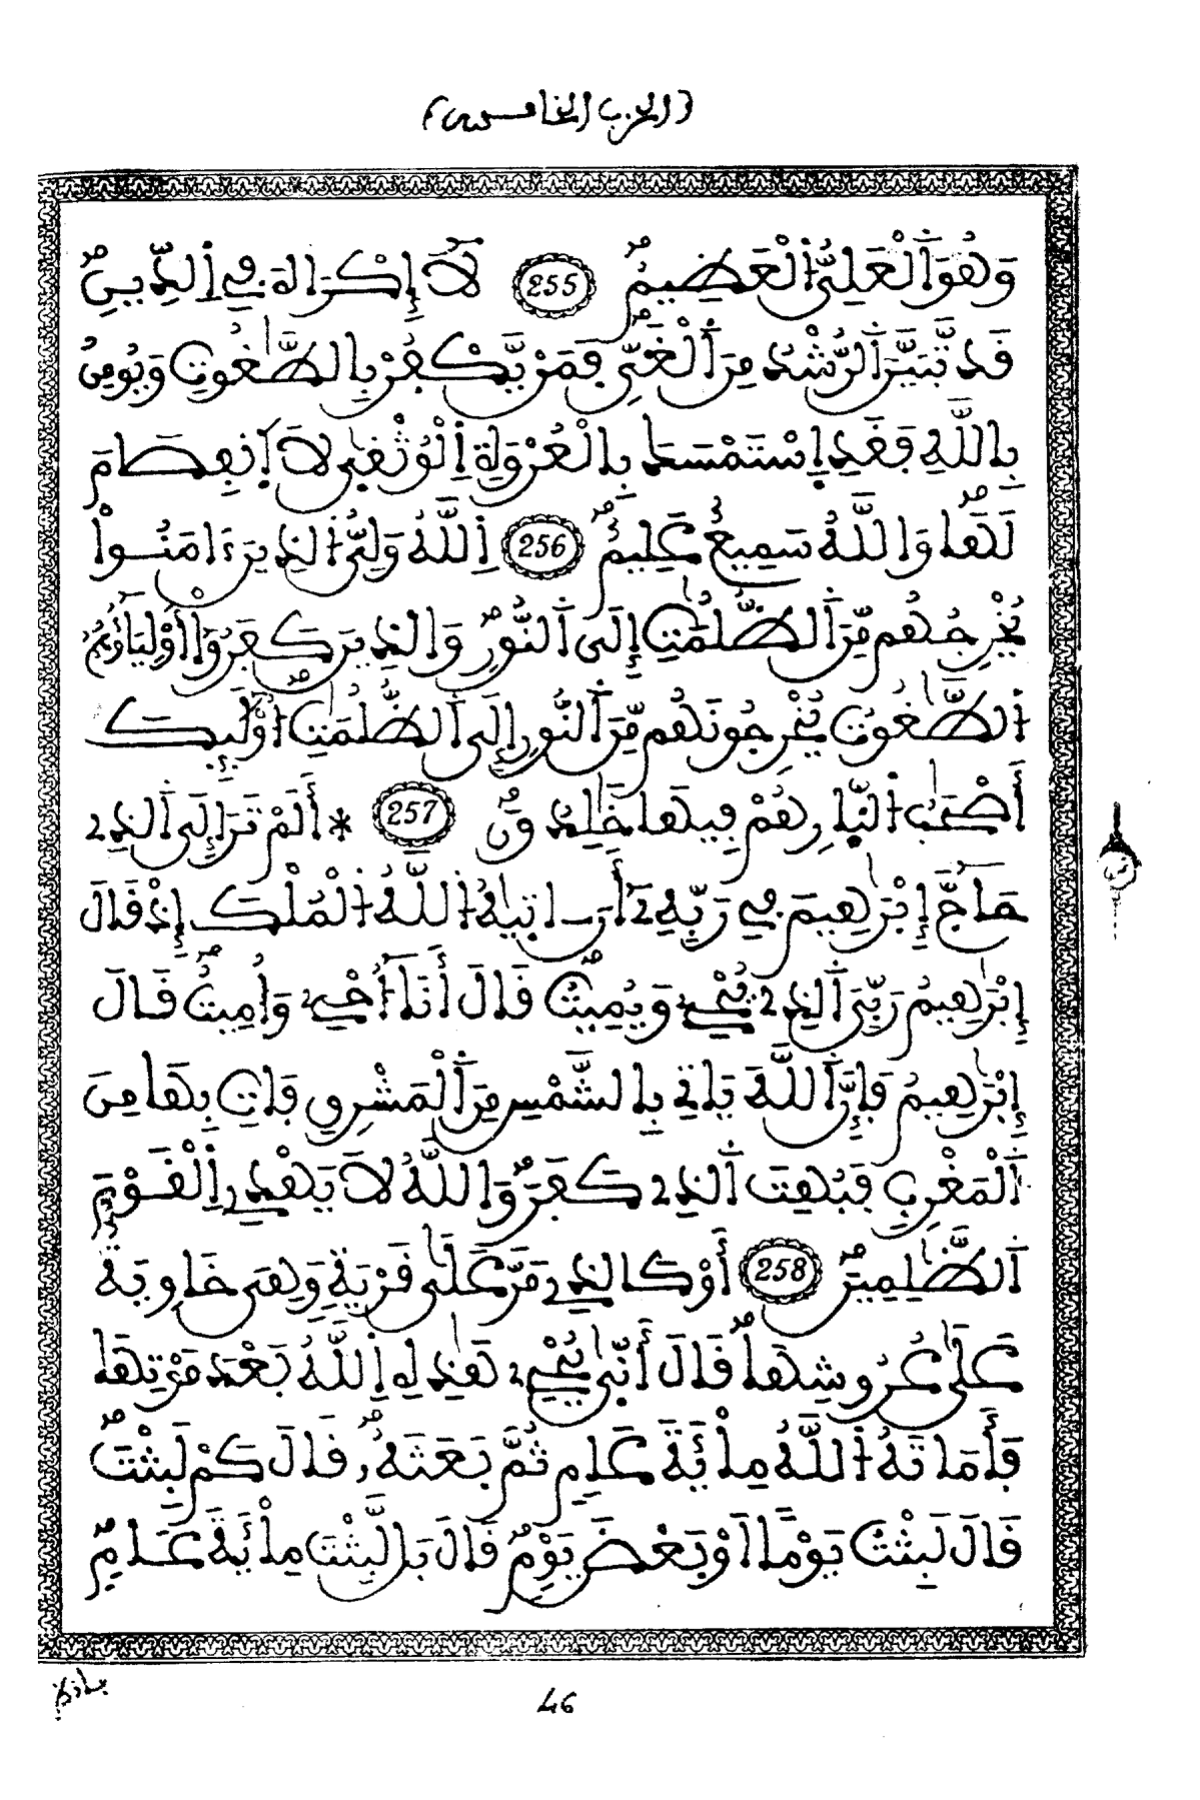 (الحزب الخامس)
وَهُوَ اَ۬لْعَلِيُّ اُ۬لْعَظِيمُ 255 لَآ إِكْرَاهَ فِي اِ۬لدِّينِ
قَد تَّبَيَّنَ اَ۬لرُّشْدُ مِنَ اَ۬لْغَيِّ فَمَنْ يَّكْفُرْ بِالطَّٰغُوتِ وَيُومِنۢ
بِاللَّهِ فَقَدِ اِ۪سْتَمْسَكَ بِالْعُرْوَةِ اِ۬لْوُثْق۪يٰ لَا اَ۪نفِصَامَ
لَهَا وَاللَّهُ سَمِيعٌ عَلِيمٌ 256 اِ۬للَّهُ وَلِيُّ اُ۬لذِينَ ءَامَنُواْ
يُخْرِجُهُم مِّنَ اَ۬لظُّلُمَٰتِ إِلَى اَ۬لنُّورِ وَالذِينَ كَفَرُوٓاْ أَوْلِيَآؤُهُمُ
اُ۬لطَّٰغُوتُ يُخْرِجُونَهُم مِّنَ اَ۬لنُّورِ إِلَى اَ۬لظُّلُمَٰتِ أُوْلَٰٓئِكَ
أَصْحَٰبُ اُ۬لنّ۪ارِ هُمْ فِيهَا خَٰلِدُونَ 257 * أَلَمْ تَرَ إِلَى اَ۬لذِے
حَآجَّ إِبْرَٰهِيمَ فِي رَبِّهِۦٓ أَنَ اٰت۪يٰهُ اُ۬للَّهُ اُ۬لْمُلْكَ إِذْ قَالَ
إِبْرَٰهِيمُ رَبِّيَ اَ۬لذِے يُحْيِۦ وَيُمِيتُ قَالَ أَنَآ أُحْيِۦ وَأُمِيتُ قَالَ
إِبْرَٰهِيمُ فَإِنَّ اَ۬للَّهَ يَاتِي بِالشَّمْسِ مِنَ اَ۬لْمَشْرِقِ فَاتِ بِهَا مِنَ
اَ۬لْمَغْرِبِ فَبُهِتَ اَ۬لذِے كَفَرَ وَاللَّهُ لَا يَهْدِي اِ۬لْقَوْمَ
اَ۬لظَّٰلِمِينَ 258 أَوْ كَالذِي مَرَّ عَلَيٰ قَرْيَةٍ وَهِيَ خَاوِيَةٌ
عَلَيٰ عُرُوشِهَا قَالَ أَنّ۪يٰ يُحْيِۦ هَٰذِهِ اِ۬للَّهُ بَعْدَ مَوْتِهَا
فَأَمَاتَهُ اُ۬للَّهُ مِاْئَةَ عَامٍ ثُمَّ بَعَثَهُۥ قَالَ كَمْ لَبِثْتَ
قَالَ لَبِثْتُ يَوْمًا اَوْ بَعْضَ يَوْمٍ قَالَ بَل لَّبِثْتَ مِاْئَةَ عَامٍ
46